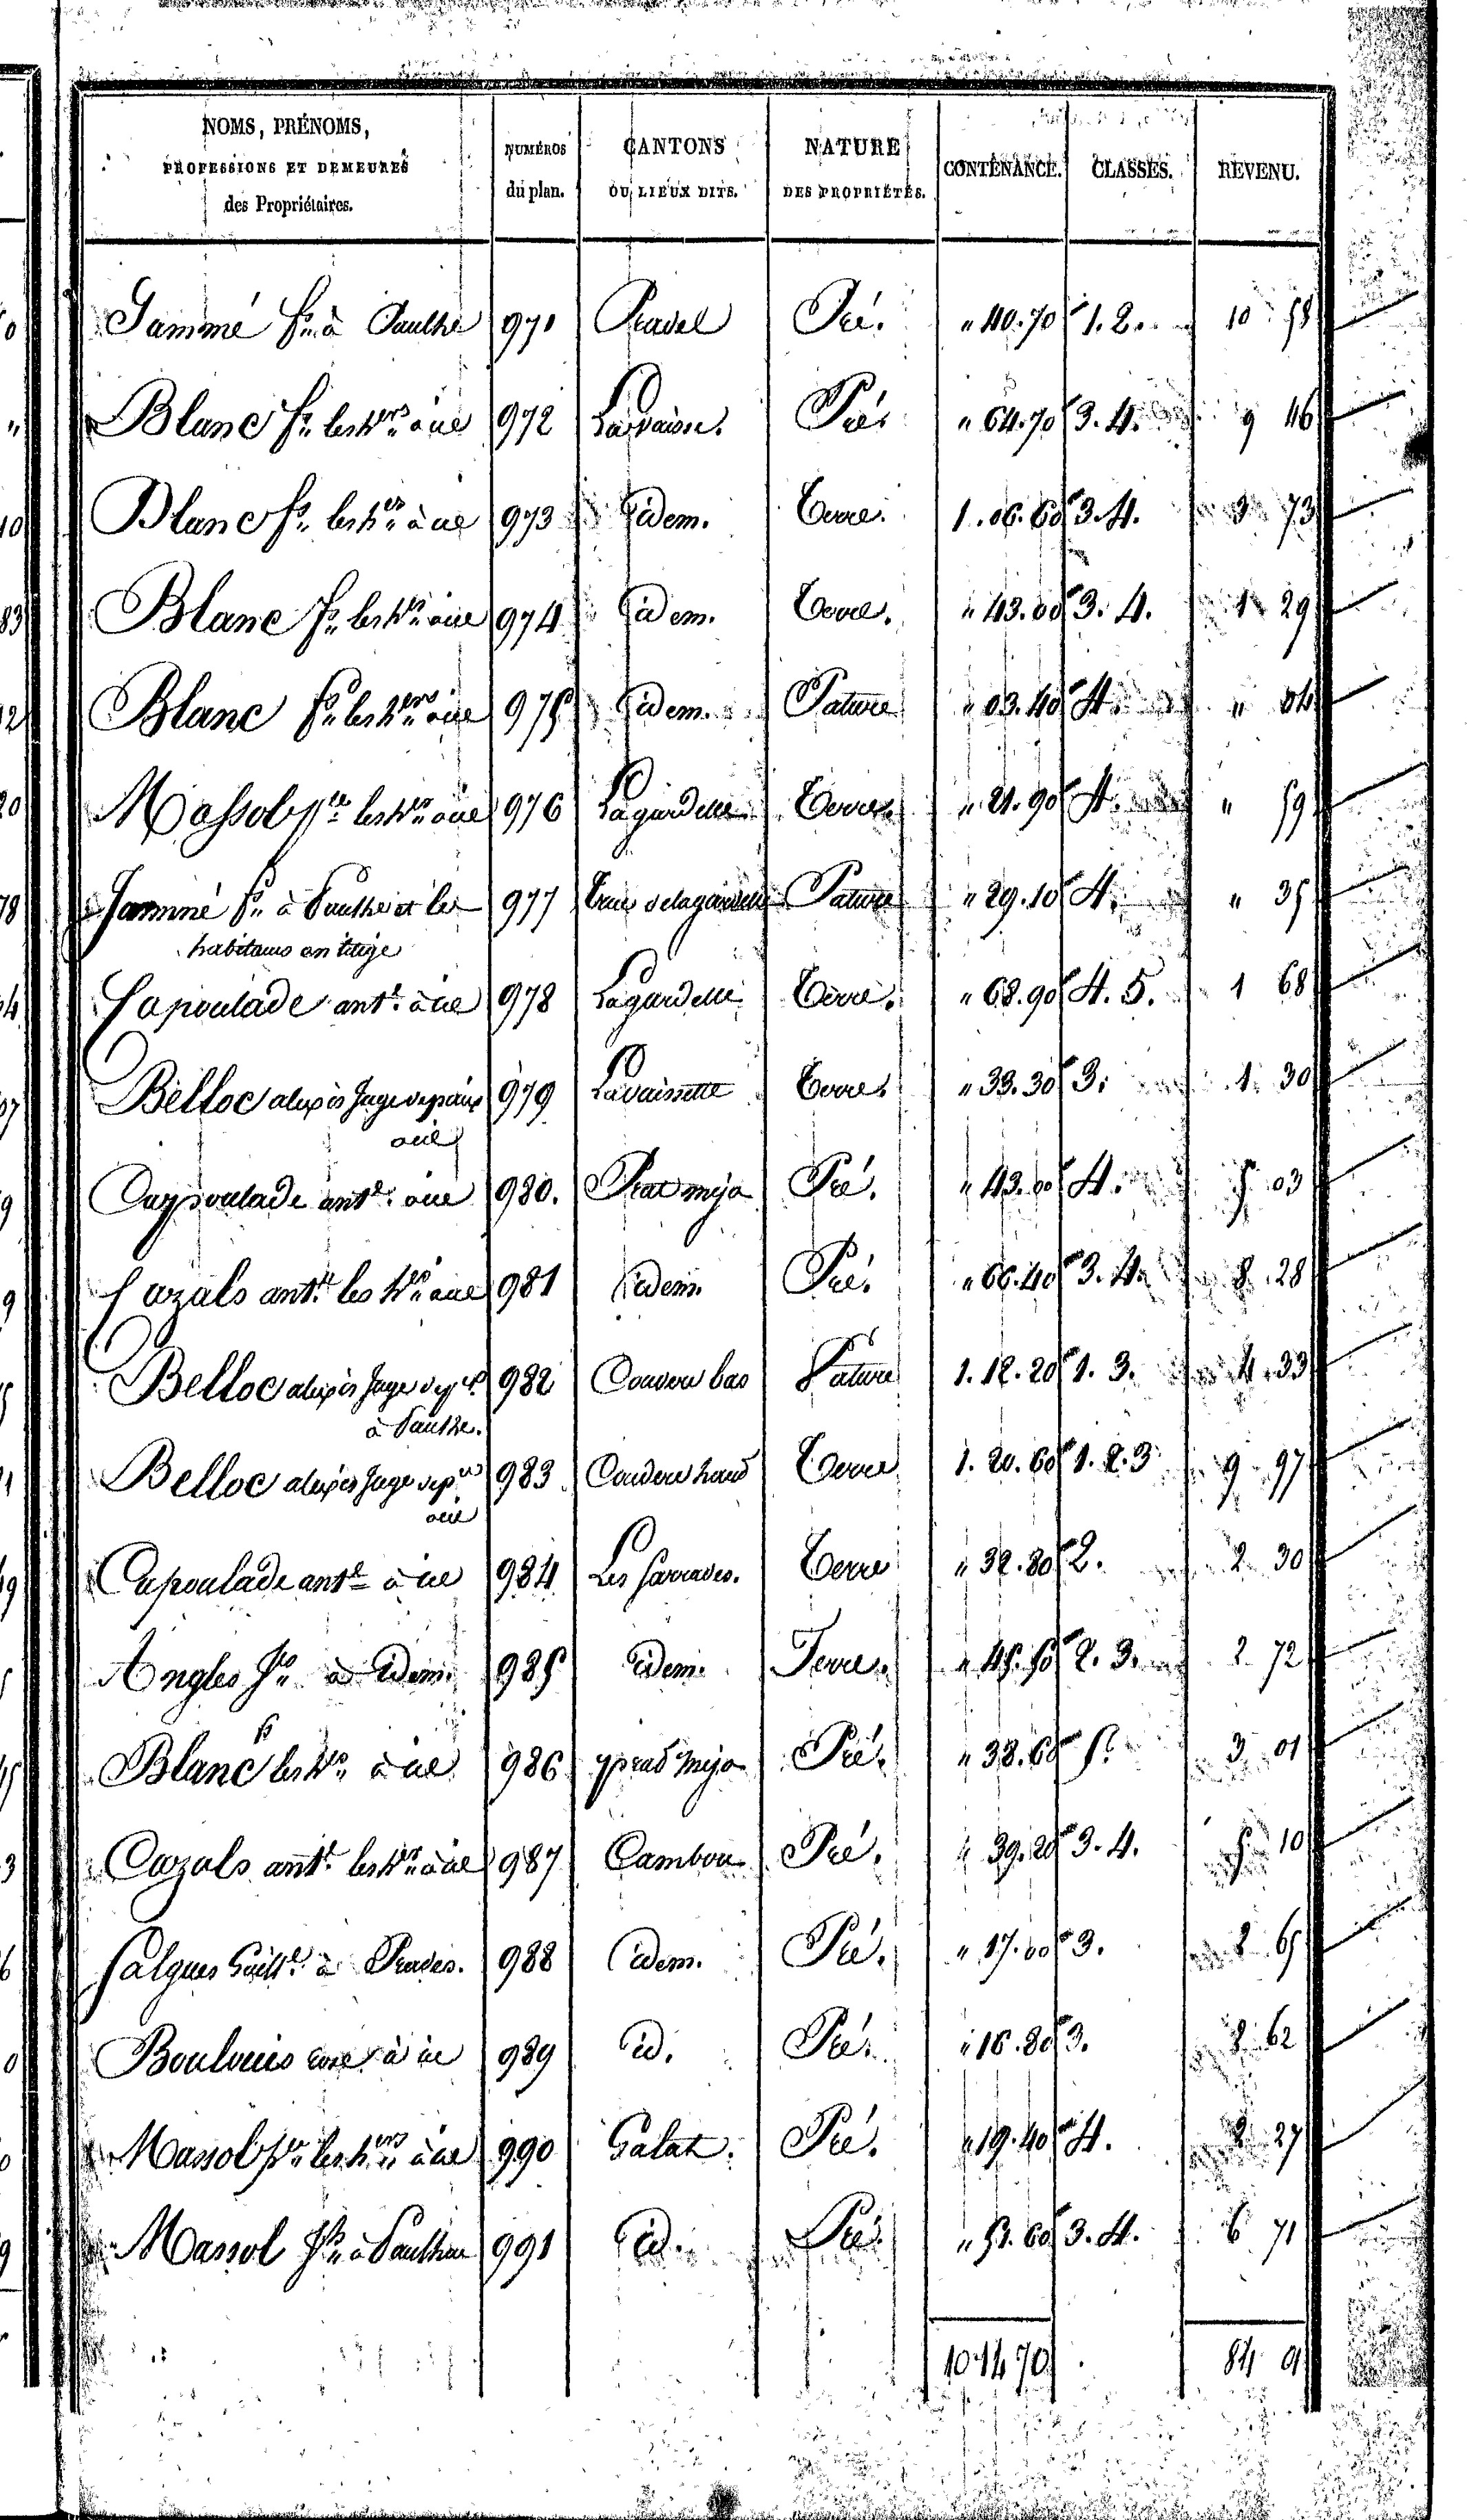 NOMS, PRÉNOMS, PROFESSIONS ET DEMEURES des Propriétaires. NUMÉROS du plan. CANTONS OU LIEUX DITS. NATURE DES PROPRIÉTÉS. CONTENANCE. CLASSES. REVENU.
Jammé fs. à Vaulhe 971 Pradel Pré. " 40.70 1. 2. 10 58
Blanc fs. les hrs. à ue 972 Pré. " 64.70 3. 4. 9 46
Blanc fs. les hrs. à ue 973 idem. Terre. 1. 06. 60 3. 4. 3 73
Blanc fs. les hrs. à ue 974 idem. Terre. " 43. 00 3. 4. 1 29
Blanc fs. les hers. à ue 975 idem. Pature " 03. 40 4. " 04
Massol les hrs. à ue 976 Lagardelle Terre. " 21. 90 4. " 59
Jammé fs. à Vaulhe et les 977 Pature " 29. 10 4. " 35
habitans en litige
Capoulade ante. à ue 978 Lagardelle Terre. " 68. 90 4. 5. 1 68
Belloc alexis Juge de paix 979 Lavaissette Terre. " 33. 30 3. 1 30
à ue
Capoulade ante. à ue 980. Prat mija Pré. " 43. 00 4. 5 03
Cazals ante. les hrs. à ue 981 idem. Pré. " 66. 40 3. 4. 8 28
Belloc alexis Juge de 982 Couderc bas Pature 1. 12. 20 1. 3. 4 33
à Vaulhe.
Belloc alexis Juge de 983 Couderc haut Terre 1. 20. 60 1. 2. 3 9 97
à ue
Capoulade ante. à ue 984 Les Terre " 32. 80 2. 2 30
Angles à idem. 985 idem. Terre. " 45. 50 2. 3. 2 72
Blanc fs les hrs. à ue 986 prat mija Pré. " 38. 60 5. 3 01
Cazals ante. les hrs. à ue 987 Cambou Pré. " 39. 20 3. 4. 5 10
Salgues à Prades. 988 idem. Pré. " 17. 00 3. 2 65
à ue 989 id. Pré. " 16. 80 3. 2 62
Massol les hers. à ue 990 Galat. Pré. " 19. 40 4. 2 27
Massol à 991 id. Pré. " 51. 60 3. 4. 6 71
10 14 70 84 01